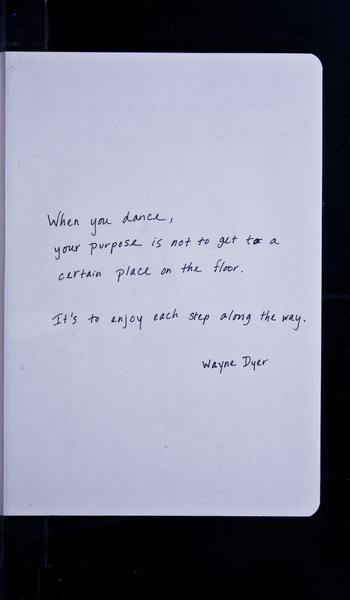 When you dance,
your purpose is not to get to a
certain place on the floor.
It's to enjoy each step along the way.
Wayne Dyer